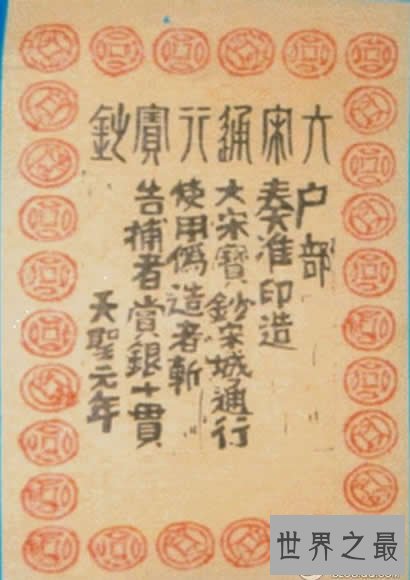 大宋通行寶鈔
户部
奏准印造
大宋寶鈔宋城通行
使用偽造者斬
告捕者賞銀十貫
天聖元年
世界之最